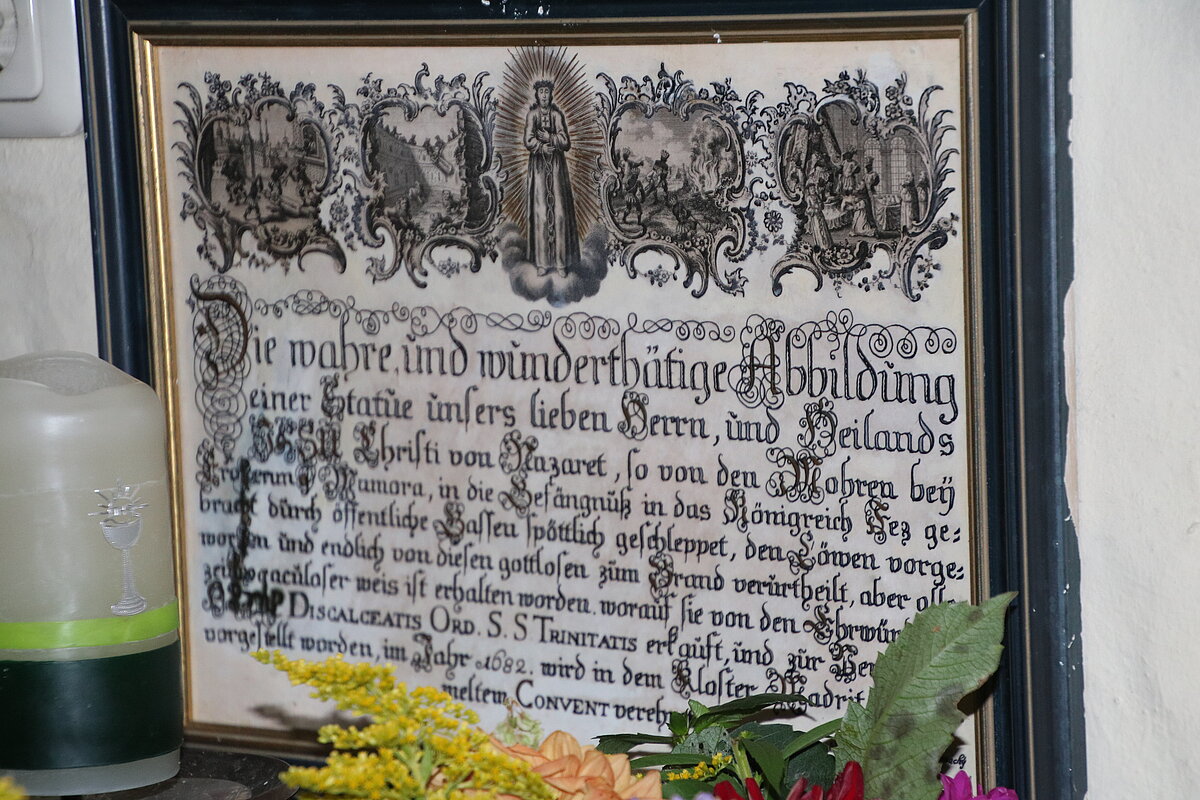 Die wahre, und wunderthätige Abbildung
einer Statue unsers lieben Herrn, und Heilands
JESU Christi von Nazaret, so von den Mohren beÿ
Eroberung Mamora, in die Gefängnüß in das Königreich Fez ge:
bracht durch öffentliche Gassen spöttlich geschleppet, den Löwen vorge:
worfen und endlich von diesen gottlosen zum Brand verurtheilt, aber
weis ist erhalten worden. worauf sie von den
DISCALCEATIS ORD. S. S TRINITATIS erkauft, und zür
vorgestellt worden, im Jahr 1682. wird in dem Kloster Madrit
meltem CONVENT